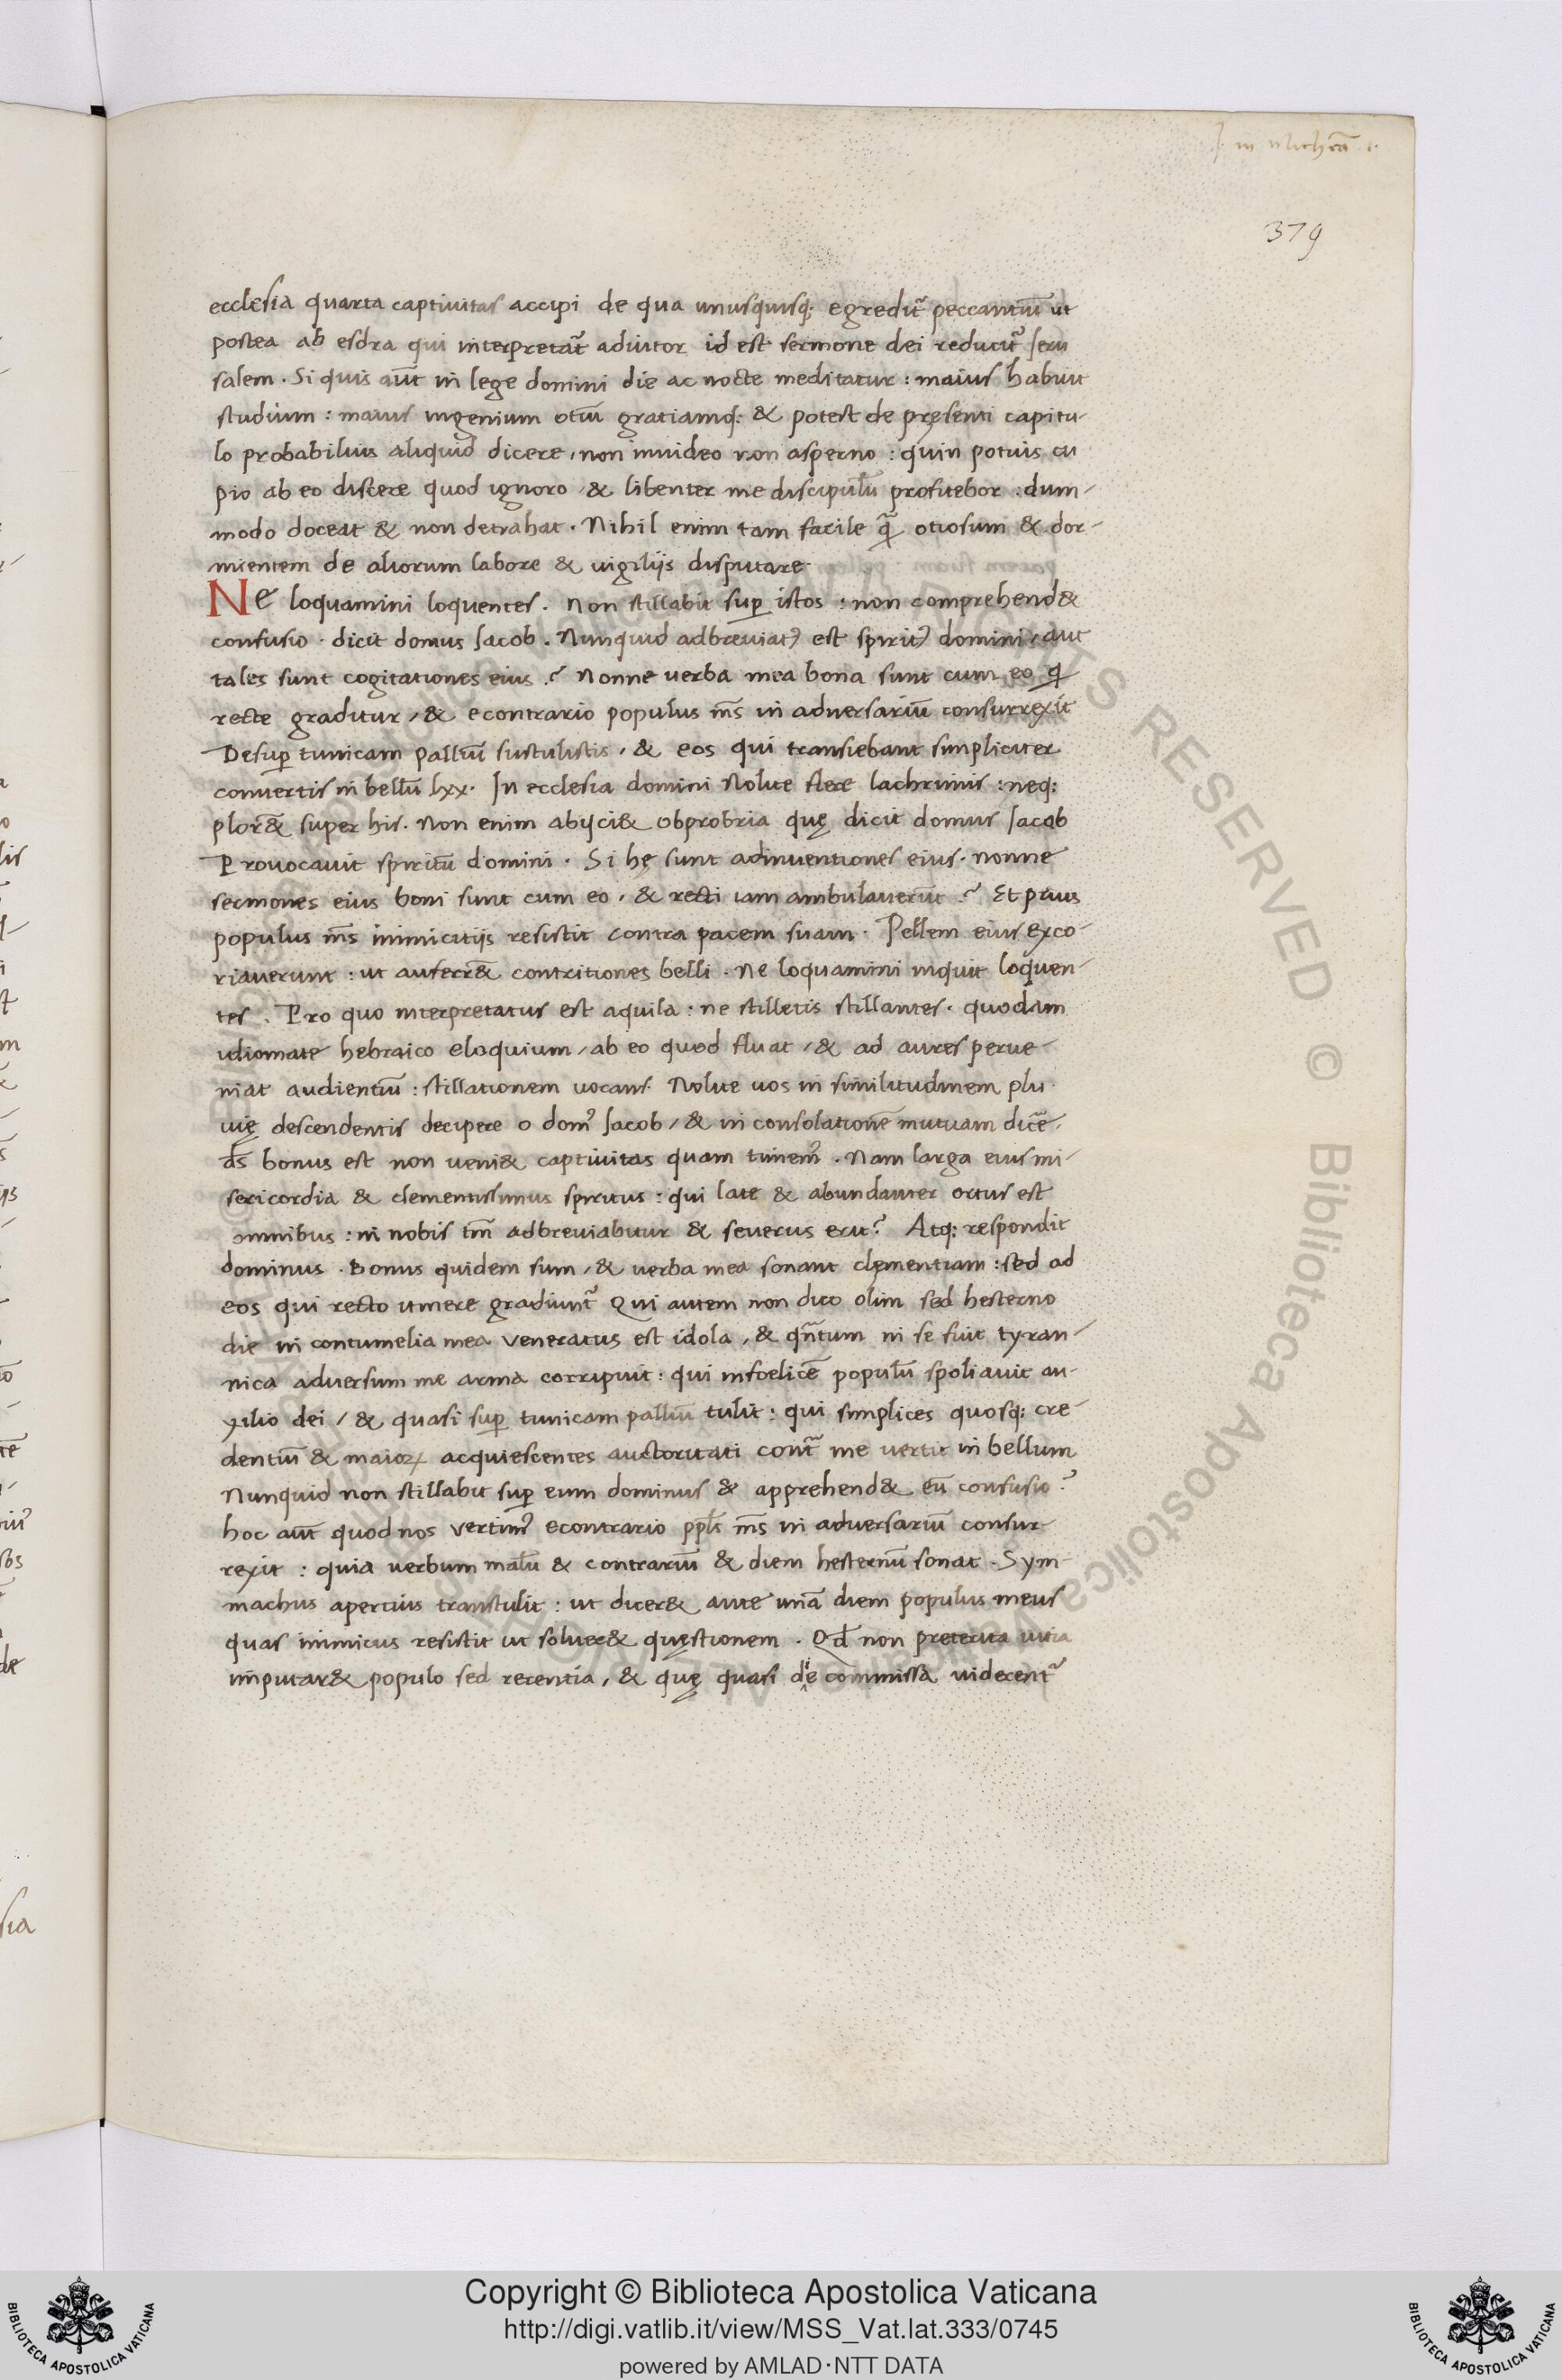 J. in Michea .1.
379
ecclesia quarta captiuitas accipi de qua unusquisq; egredit̃ peccantiũ ut
postea ab esdra qui interpretat̃ adiutor id est sermone dei reducit̃ Ieru
salem. Si quis aũt in lege domini die ac nocte meditatur: maius habuit
studium: maius ingenium otiũ gratiamq; & potest de pręsenti capitu-
lo probabilius aliquid dicere, non inuideo non asperno: quin potuis cu
pio ab eo discere quod ignoro, & libenter me discipulũ profitebor: dum-
modo doceat & non detrahat. Nihil enim tam facile q̃ otiosum & dor-
mientem de aliorum labore & uigilijs disputare.
Ne loquamini loquentes. Non stillabit sup̱ istos: non comprehend&
confusio. dicit domus Iacob. Nunquid adbreuiat⁹ est spirit⁹ domini, aut
tales sunt cogitationes eius? Nonne uerba mea bona sunt cum eo q̱
recte graditur, & econtrario populus m̃s in aduersariũ consurrexit
Desup̱ tunicam palliũ sustulistis, & eos qui transiebant simpliciter
conuertis in bellũ lxx. In ecclesia domini Nolite flere lachrimis: neq;
plor& super his. Non enim abijci& obprobria quę dicit domus Iacob
Prouocauit spiritũ domini. Si hę sunt adinuentiones eius. nonne
sermones eius boni sunt cum eo, & recti iam ambulauerũt? Et prius
populus m̃s inimicitijs resistit contra pacem suam. Pellem eius exco-
riauerunt: ut auferr& contritiones belli. Ne loquamini inquit loquen-
tes. Pro quo interpretatus est aquila: ne stilletis stillantes. quodam
idiomate hebraico eloquium, ab eo quod fluat, & ad aures perue-
niat audientiũ: stillationem uocans. Nolite uos in similitudinem plu-
uię descendentis decipere o dom⁹ Iacob, & in consolationẽ mutuam dicẽ.
d̃s bonus est non ueni& captiuitas quam timem⁹. Nam larga eius mi-
sericordia & clementissimus spiritus: qui late & abundanter ortus est
omnibus: in nobis tm̃ adbreuiabitur & seuerus erit? Atq; respondit
dominus. Bonus quidem sum, & uerba mea sonant clementiam: sed ad
eos qui recto itinere gradiunt̃ Qui autem non dico olim sed hesterno
die in contumelia mea veneratus est idola, & qñtum in se fuit tyran-
nica aduersum me arma corripuit: qui infoelicẽ populũ spoliauit au-
xilio dei, & quasi sup̱ tunicam palliũ tulit: qui simplices quosq; cre-
dentiũ & maioꝝ acquiescentes auctoritati cont̃ me uertit in bellum
Nunquid non stillabit sup̱ eum dominus & apprehend& eũ confusio?
hoc aũt quod nos vertim⁹ econtrario pp̃ls m̃s in aduersariũ consur-
rexit: quia uerbum malũ & contrariũ & diem hesternũ sonat. Sym-
machus apertius transtulit: ut dicer& ante unã diem populus meus
quas inimicus resistit ut soluer& quęstionem. Qđ non preterita uitia
imputar& populo sed recentia, & quę quasi die commissa uiderent̃